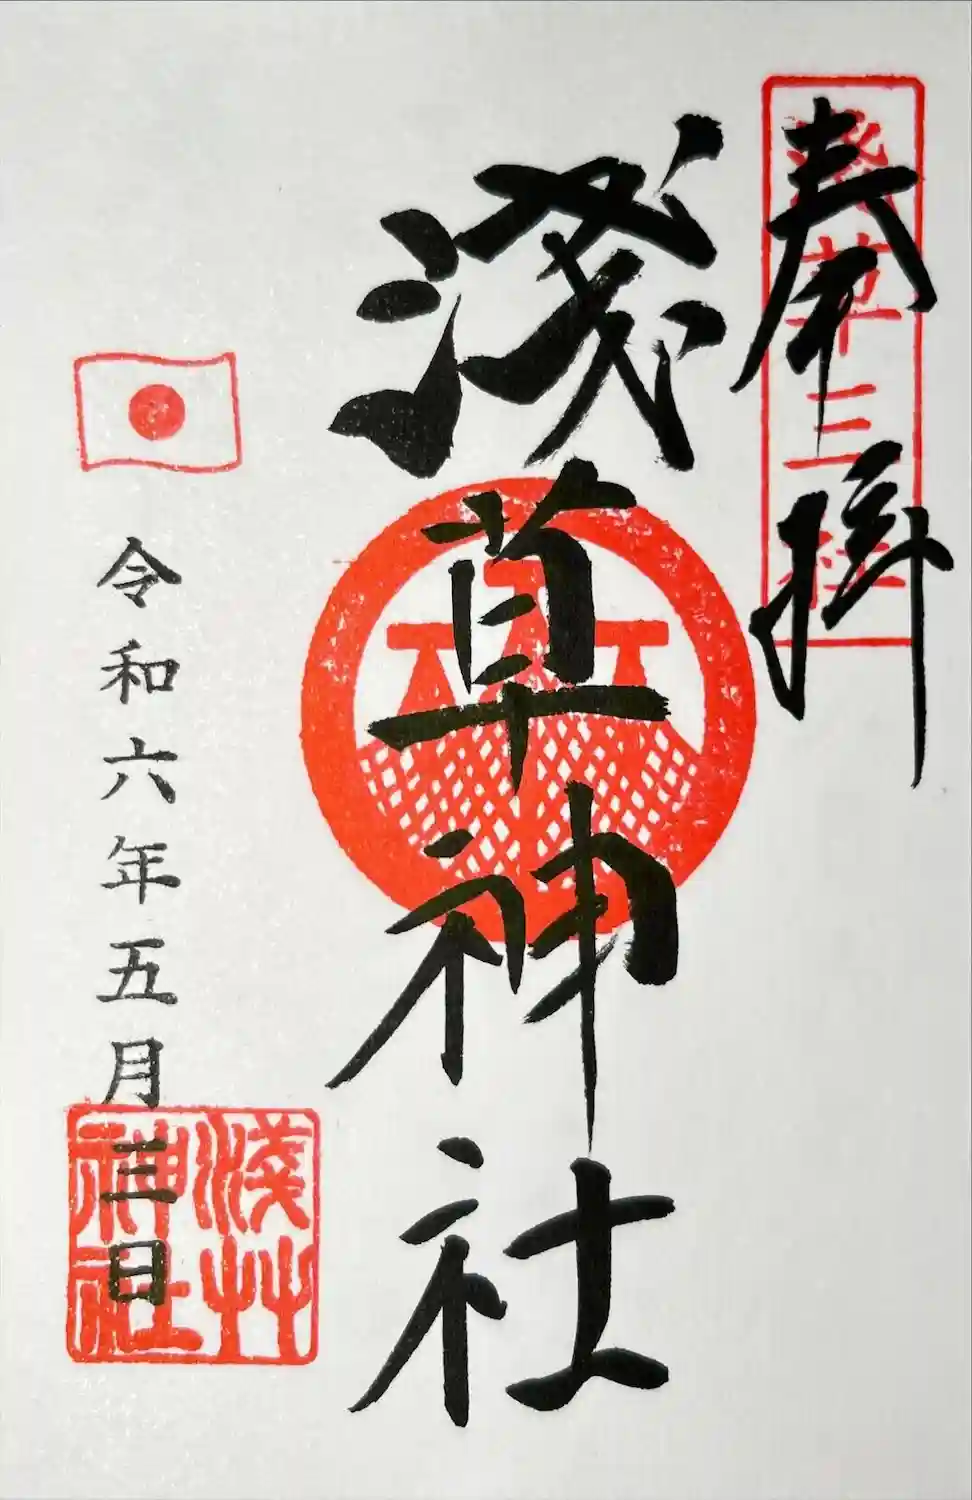 奉拝
淺草三社
淺草神社
令和六年五月三日
淺艸神社